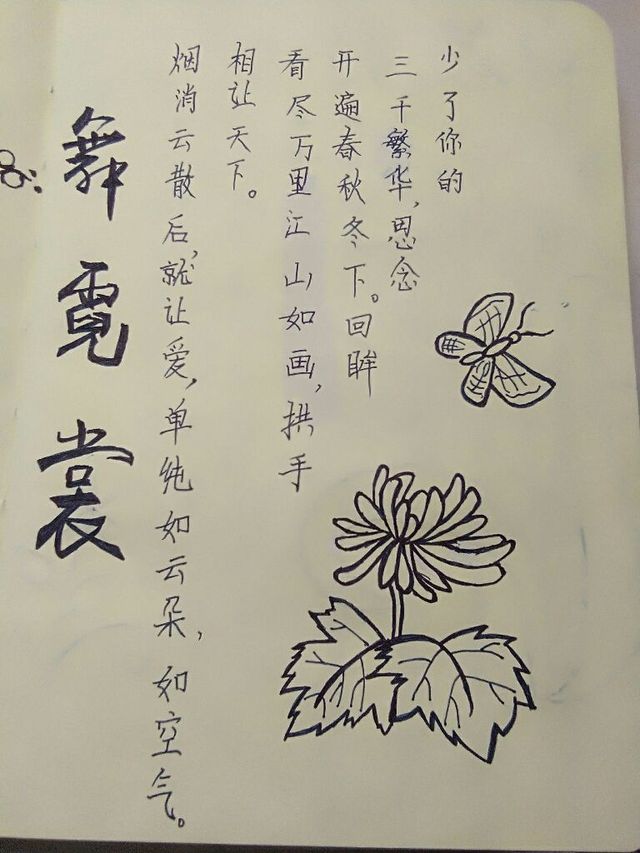 少了你的
三千繁华,思念
开遍春秋冬下。回眸
看尽万里江山如画,拱手
相让天下。
烟消云散后,就让爱,单纯如云朵,如空气。
舞霓裳